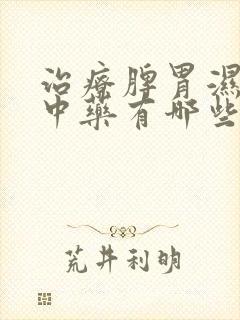 治療脾胃濕
中藥有哪些
荒井利明